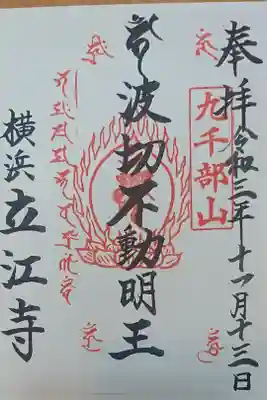 奉拝 令和三年十一月十三日
九千部山
波切不動明王
横浜 立江寺